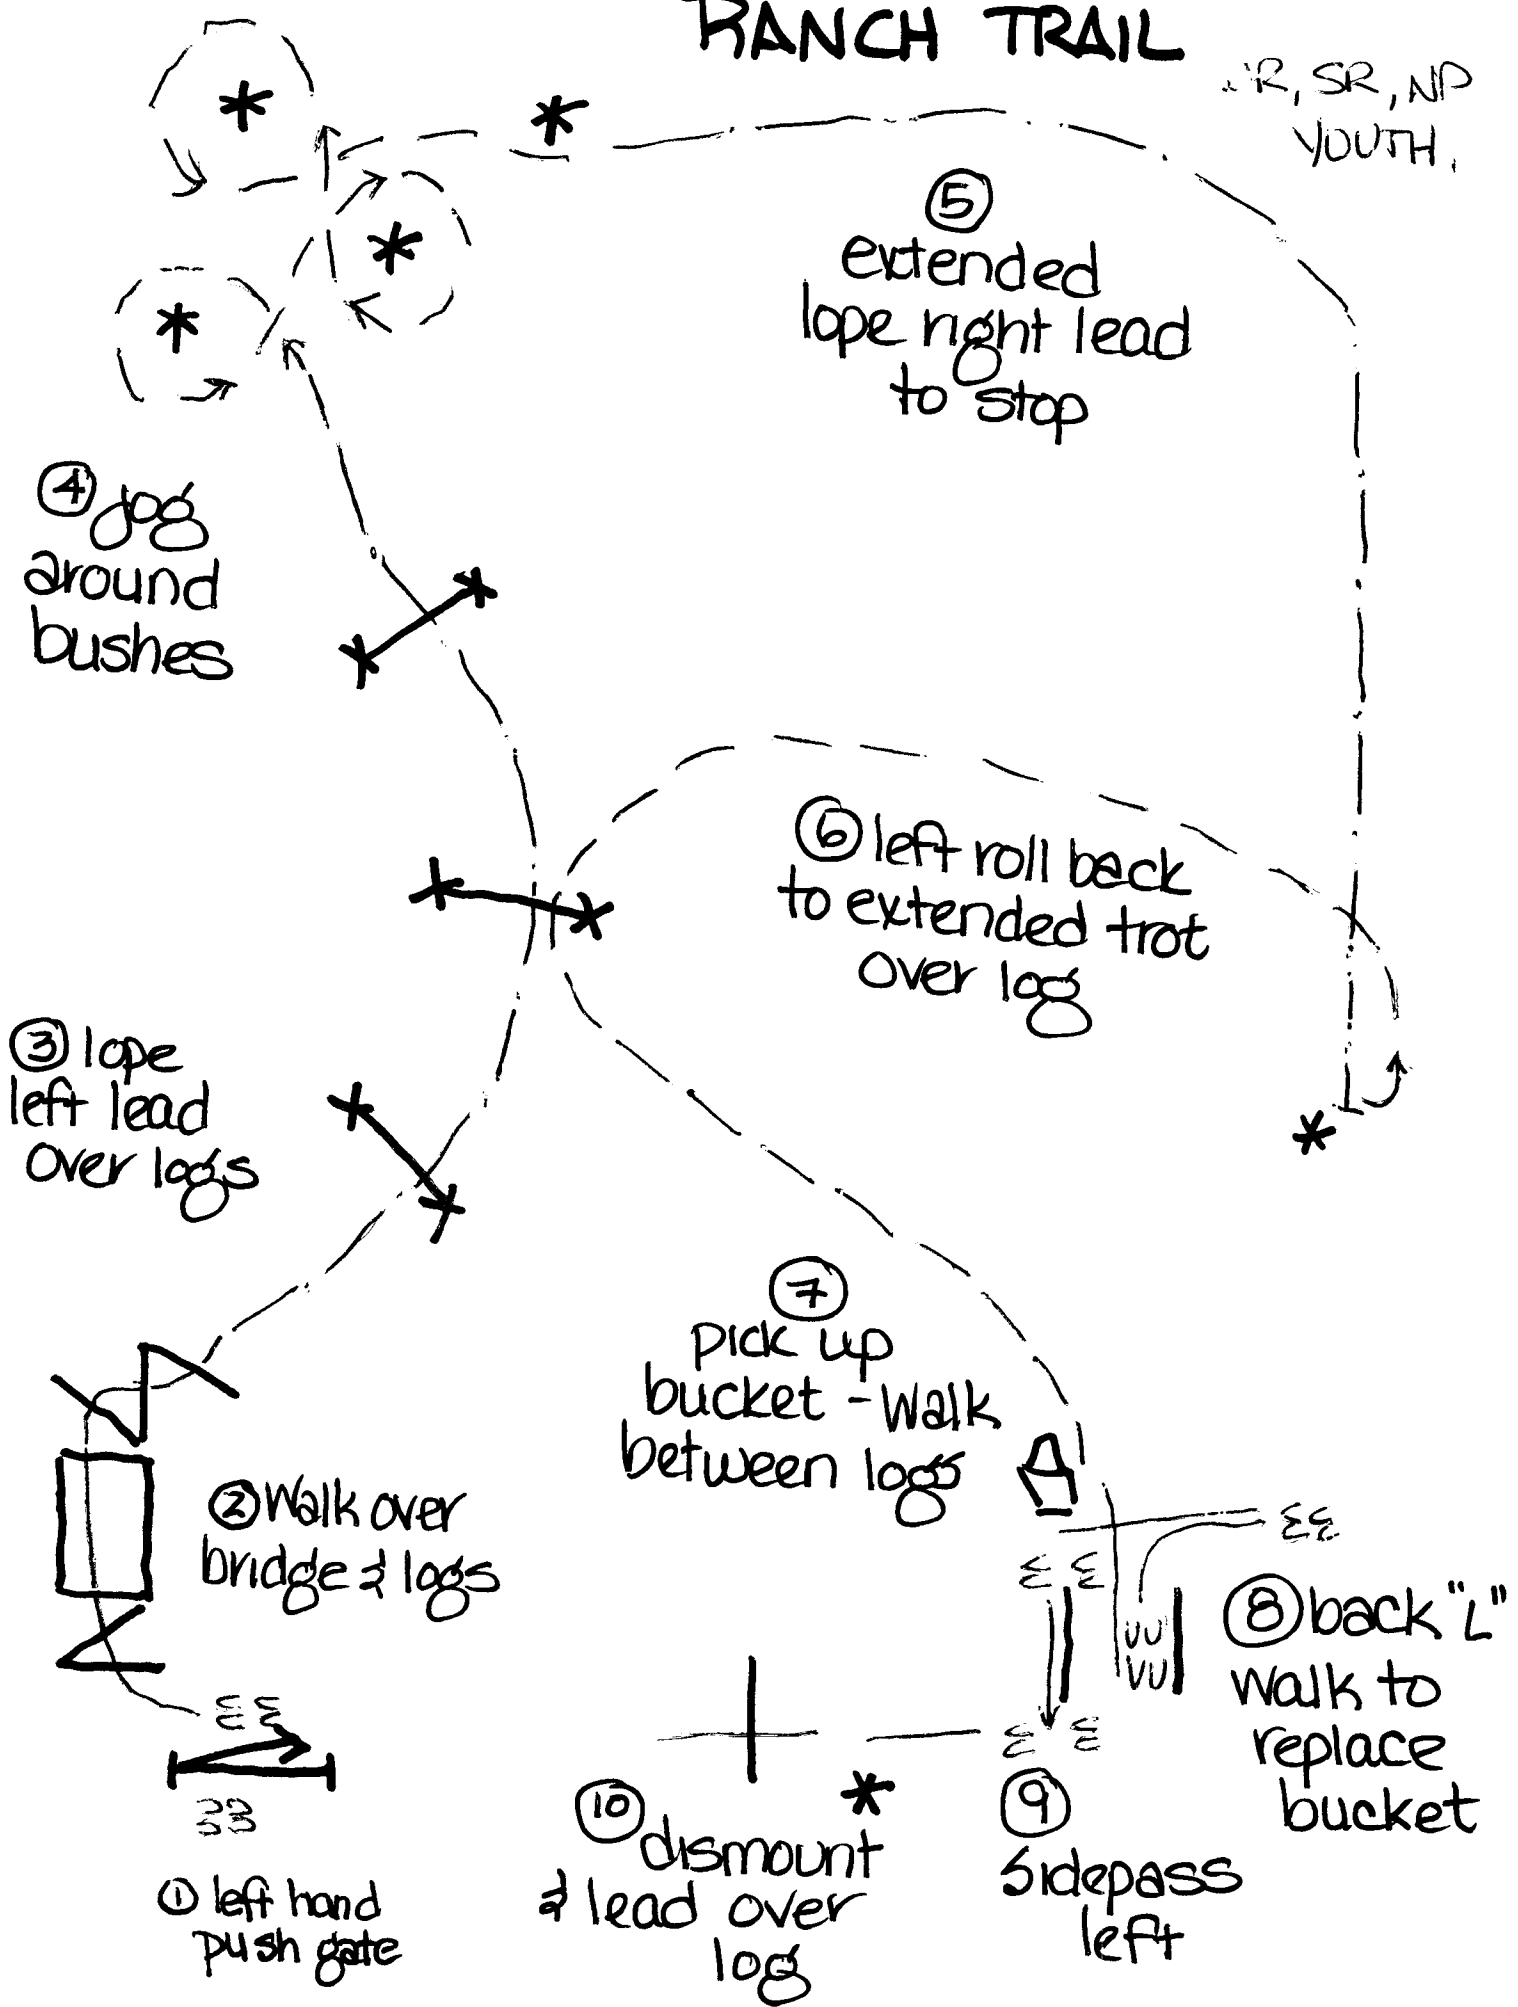 RANCH TRAIL
JR, SR, NP
YOUTH.
⑤
extended
lope right lead
to stop
④ jog
around
bushes
⑥ left roll back
to extended trot
over log
③ lope
left lead
over logs
⑦
pick up
bucket - Walk
between logs
② Walk over
bridge & logs
⑧ back "L"
walk to
replace
bucket
⑨
Sidepass
left
⑩
dismount
& lead over
log
① left hand
push gate